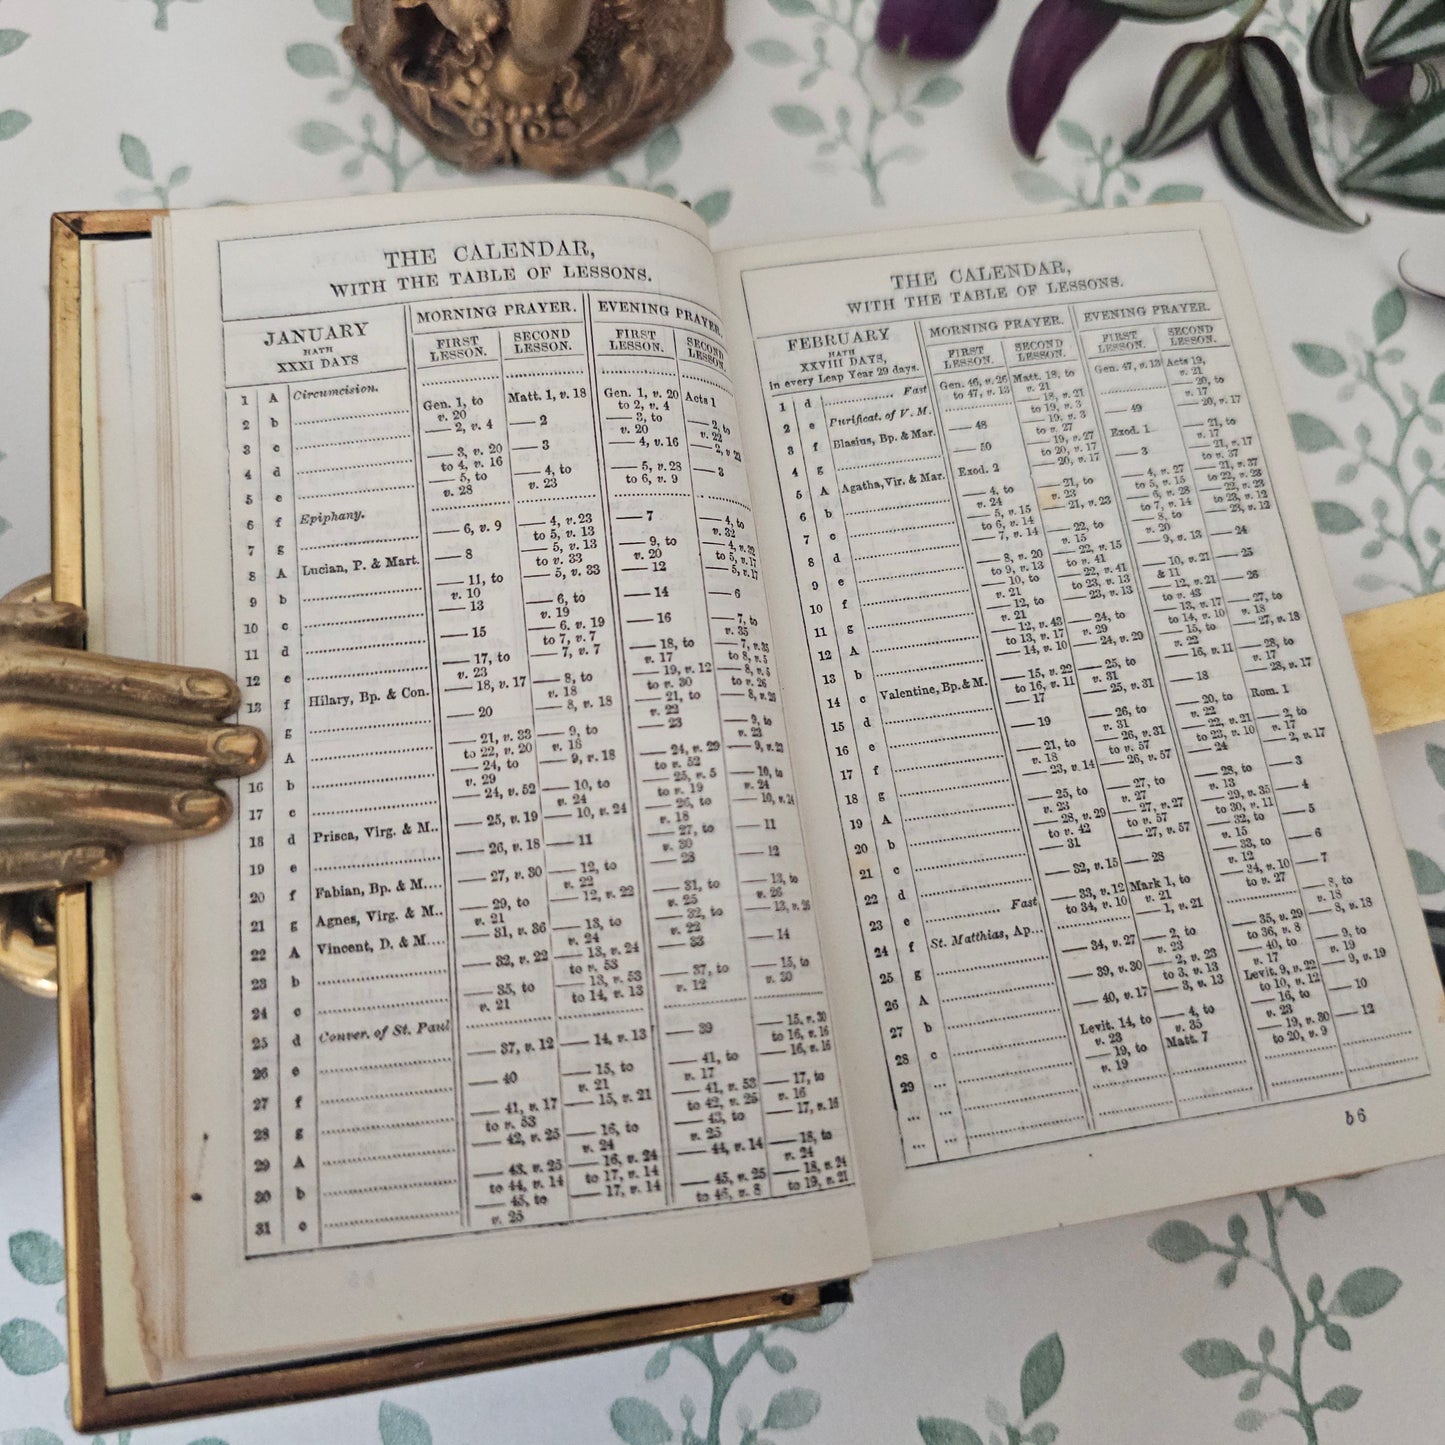 THE CALENDAR,
WITH THE TABLE OF LESSONS.
JANUARY
HATH
XXXI DAYS
MORNING PRAYER. EVENING PRAYER.
FIRST LESSON. SECOND LESSON. FIRST LESSON. SECOND LESSON.
1 A Circumcision.
2 b Gen. 1, to v. 20 Matt. 1, v. 18 Gen. 1, v. 20 to 2, v. 4 Acts 1
3 c — 2, v. 4 — 2 — 3, to v. 20 — 2, to v. 22
4 d — 3, v. 20 to 4, v. 16 — 3 — 4, v. 16 — 2, v. 22
5 e — 5, to v. 28 — 4, to v. 23 — 5, v. 28 to 6, v. 9 — 3
6 f Epiphany.
7 g — 6, v. 9 — 4, v. 23 to 5, v. 13 — 7 — 4, to v. 32
8 A Lucian, P. & Mart. — 8 — 5, v. 13 to v. 33 — 9, to v. 20 — 4, v. 32 to 5, v. 17
9 b — 11, to v. 10 — 5, v. 33 — 12 — 5, v. 17
10 c — 13 — 6, to v. 19 — 14 — 6
11 d — 15 — 6, v. 19 to 7, v. 7 — 16 — 7, to v. 35
12 e — 17, to v. 23 — 7, v. 7 — 18, to v. 17 — 7, v. 35 to 8, v. 5
13 f Hilary, Bp. & Con. — 18, v. 17 — 8, to v. 18 — 19, v. 12 to v. 30 — 8, v. 5 to v. 26
g — 20 — 8, v. 18 — 21, to v. 22 — 8, v. 26
A — 21, v. 33 to 22, v. 20 — 9, to v. 18 — 23 — 9, to v. 23
16 b — 24, to v. 29 — 9, v. 18 — 24, v. 29 to v. 52 — 9, v. 23
17 c — 24, v. 52 — 10, to v. 24 — 25, v. 5 to v. 19 — 10, to v. 24
18 d Prisca, Virg. & M.. — 25, v. 19 — 10, v. 24 — 26, to v. 18 — 10, v. 24
19 e — 26, v. 18 — 11 — 27, to v. 30 — 11
20 f Fabian, Bp. & M.... — 27, v. 30 — 12, to v. 22 — 28 — 12
21 g Agnes, Virg. & M.. — 29, to v. 21 — 12, v. 22 — 31, to v. 25 — 13, to v. 26
22 A Vincent, D. & M.... — 31, v. 36 — 13, to v. 24 — 32, to v. 22 — 13, v. 26
23 b — 32, v. 22 — 13, v. 24 to v. 53 — 33 — 14
24 c — 35, to v. 21 — 13, v. 53 to 14, v. 13 — 37, to v. 12 — 15, to v. 30
25 d Conver. of St. Paul
26 e — 37, v. 12 — 14, v. 13 — 39 — 15, v. 30 to 16, v. 16
27 f — 40 — 15, to v. 21 — 41, to v. 17 — 16, v. 16
28 g — 41, v. 17 to v. 53 — 15, v. 21 — 41, v. 53 to 42, v. 25 — 17, to v. 16
29 A — 42, v. 25 — 16, to v. 24 — 43, to v. 25 — 17, v. 16
30 b — 43, v. 25 to 44, v. 14 — 16, v. 24 to 17, v. 14 — 44, v. 14 — 18, to v. 24
31 c — 45, to v. 25 — 17, v. 14 — 45, v. 25 to 46, v. 8 — 18, v. 24 to 19, v. 21
THE CALENDAR,
WITH THE TABLE OF LESSONS.
FEBRUARY
HATH
XXVIII DAYS,
in every Leap Year 29 days.
MORNING PRAYER. EVENING PRAYER.
FIRST LESSON. SECOND LESSON. FIRST LESSON. SECOND LESSON.
1 d Fast Gen. 46, v. 26 to 47, v. 13 Matt. 18, to v. 21 Gen. 47, v. 13 Acts 19, v. 21
2 e Purificat. of V. M. — 18, v. 21 to 19, v. 3 — 20, to v. 17
3 f Blasius, Bp. & Mar. — 48 — 19, v. 3 to v. 27 — 49 — 20, v. 17
4 g — 50 — 19, v. 27 to 20, v. 17 Exod. 1 — 21, to v. 17
5 A Agatha, Vir. & Mar. Exod. 2 — 20, v. 17 — 3 — 21, v. 17 to v. 37
6 b — 4, to v. 24 — 21, to v. 23 — 4, v. 27 to 5, v. 15 — 21, v. 37 to 22, v. 23
7 c — 5, v. 15 to 6, v. 14 — 21, v. 23 — 6, v. 28 to 7, v. 14 — 22, v. 23 to 23, v. 12
8 d — 7, v. 14 — 22, to v. 15 — 8, to v. 20 — 23, v. 12
9 e — 8, v. 20 to 9, v. 13 — 22, v. 15 to v. 41 — 9, v. 13 — 24
10 f — 10, to v. 21 — 22, v. 41 to 23, v. 13 — 10, v. 21 & 11 — 25
11 g — 12, to v. 21 — 23, v. 13 — 12, v. 21 to v. 43 — 26
12 A — 12, v. 43 to 13, v. 17 — 24, to v. 29 — 13, v. 17 to 14, v. 10 — 27, to v. 18
13 b — 14, v. 10 — 24, v. 29 — 15, to v. 22 — 27, v. 18
14 c Valentine, Bp. & M. — 15, v. 22 to 16, v. 11 — 25, to v. 31 — 16, v. 11 — 28, to v. 17
15 d — 17 — 25, v. 31 — 18 — 28, v. 17
16 e — 19 — 26, to v. 31 — 20, to v. 22 Rom. 1
17 f — 21, to v. 18 — 26, v. 31 to v. 57 — 22, v. 21 to 23, v. 10 — 2, to v. 17
18 g — 23, v. 14 — 26, v. 57 — 24 — 2, v. 17
19 A — 25, to v. 23 — 27, to v. 27 — 28, to v. 13 — 3
20 b — 28, v. 29 to v. 42 — 27, v. 27 to v. 57 — 29, v. 35 to 30, v. 11 — 4
21 c — 31 — 27, v. 57 — 32, to v. 15 — 5
22 d — 32, v. 15 — 28 — 33, to v. 12 — 6
23 e Fast — 33, v. 12 to 34, v. 10 Mark 1, to v. 21 — 34, v. 10 to v. 27 — 7
24 f St. Matthias, Ap... — 1, v. 21 — 8, to v. 18
25 g — 34, v. 27 — 2, to v. 23 — 35, v. 29 to 36, v. 8 — 8, v. 18
26 A — 39, v. 30 — 2, v. 23 to 3, v. 13 — 40, to v. 17 — 9, to v. 19
27 b — 40, v. 17 — 3, v. 13 Levit. 9, v. 22 to 10, v. 12 — 9, v. 19
28 c Levit. 14, to v. 23 — 4, to v. 35 — 16, to v. 23 — 10
29 ... — 19, to v. 19 Matt. 7 — 19, v. 30 to 20, v. 9 — 12
b 6